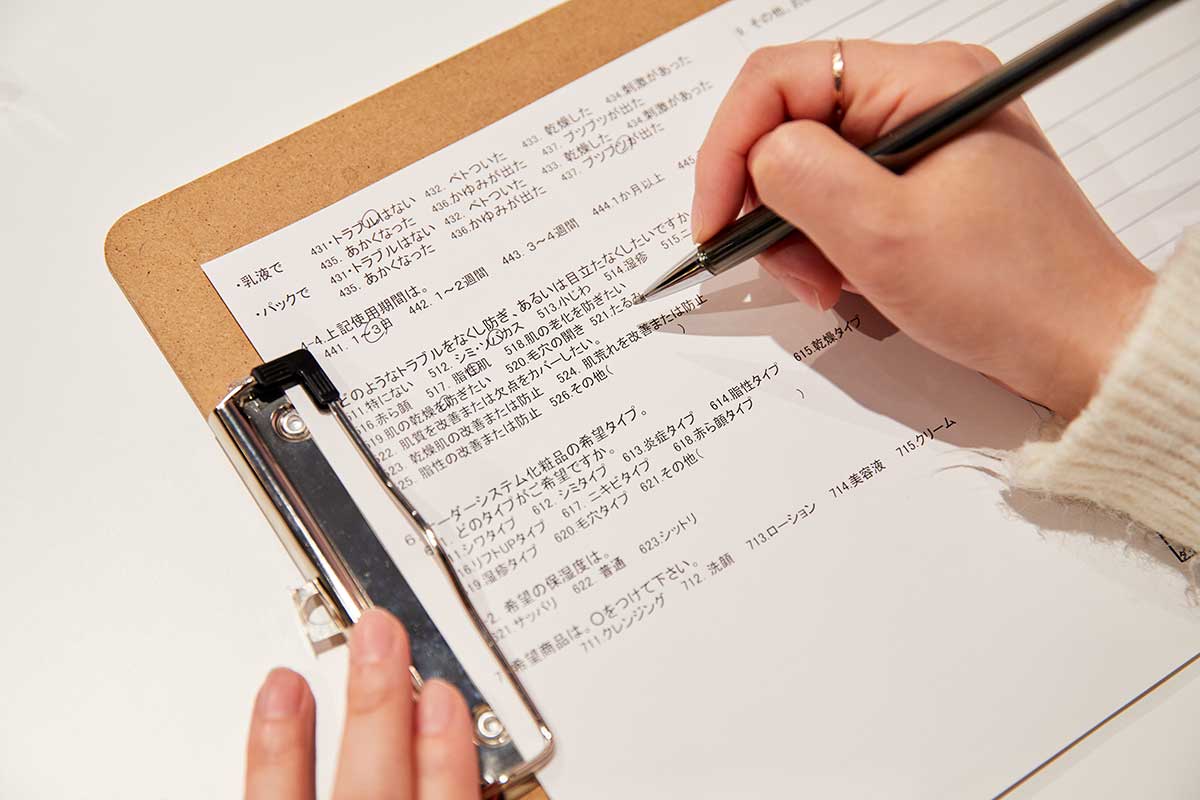 9. その他、
・乳液で 431・トラブルはない 432. ベトついた 433. 乾燥した 434.刺激があった
435. あかくなった 436.かゆみが出た 437. ブツブツが出た
・パックで 431・トラブルはない 432. ベトついた 433. 乾燥した 434.刺激があった
435. あかくなった 436.かゆみが出た 437. ブツブツが出た
4-4.上記使用期間は。
441. 1~3日 442. 1～2週間 443. 3～4週間 444.1か月以上 445.
どのようなトラブルをなくし防ぎ、あるいは目立たなくしたいですか
511.特にない 512. シミ・ソバカス 513.小じわ 514.湿疹 515.ニ
516.赤ら顔 517. 脂性肌 518.肌の老化を防ぎたい
519.肌の乾燥を防ぎたい 520.毛穴の開き 521.たるみ
522. 肌質を改善または欠点をカバーしたい。
523. 乾燥肌の改善または防止 524. 肌荒れを改善または防止
525. 脂性の改善または防止 526.その他( )
6 ーダーシステム化粧品の希望タイプ。
1. どのタイプがご希望ですか。
11.シワタイプ 612. シミタイプ 613.炎症タイプ 614.脂性タイプ 615.乾燥タイプ
16.リフトUPタイプ 617. ニキビタイプ 618.赤ら顔タイプ
19.湿疹タイプ 620.毛穴タイプ 621.その他( )
2. 希望の保湿度は。
621.サッパリ 622. 普通 623.シットリ
7 希望商品は。〇をつけて下さい。
711.クレンジング 712. 洗顔 713.ローション 714.美容液 715.クリーム